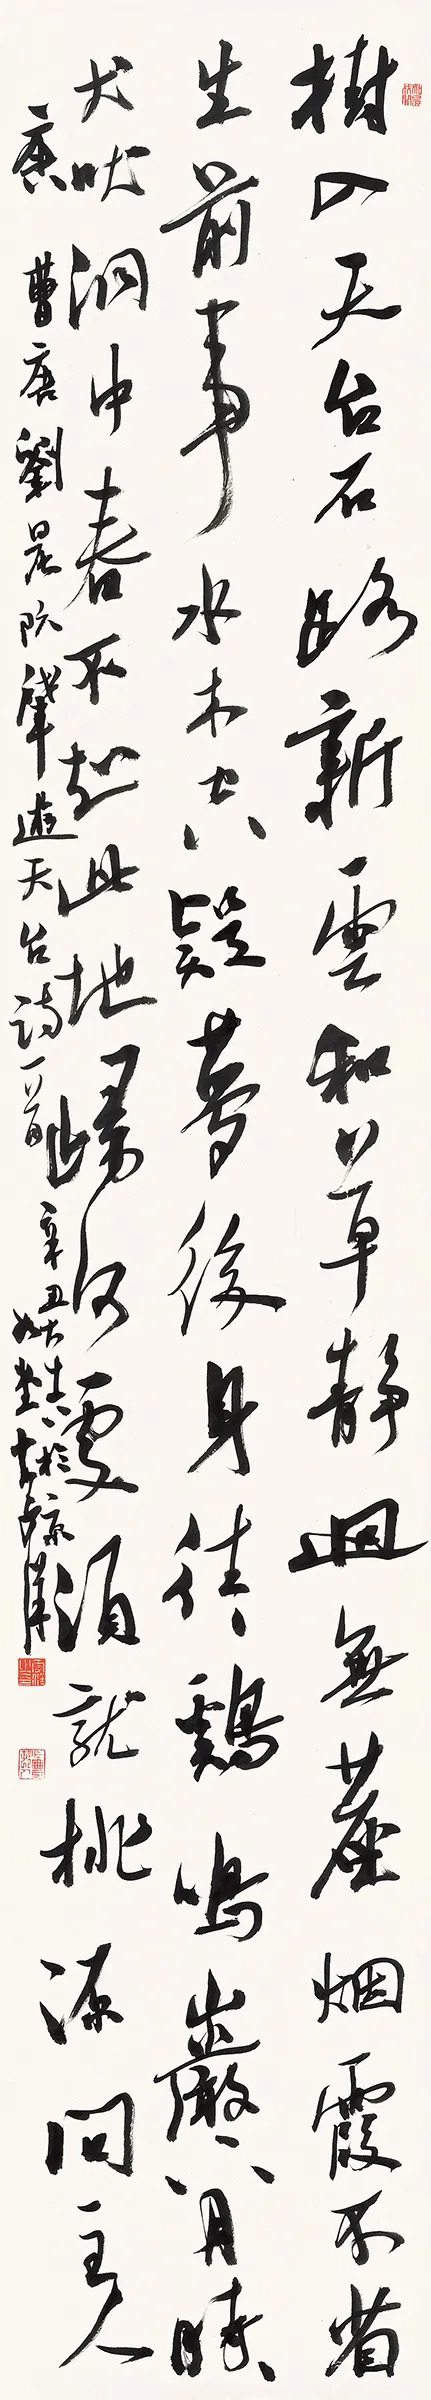 樹入天台石路新雲和草靜迥無塵烟霞不省
生前事水木空疑夢後身往々鷄鳴巖下月時々
犬吠洞中春不知此地歸何處須就桃源問主人
唐 曹唐劉晨阮肇遊天台詩一首 辛丑